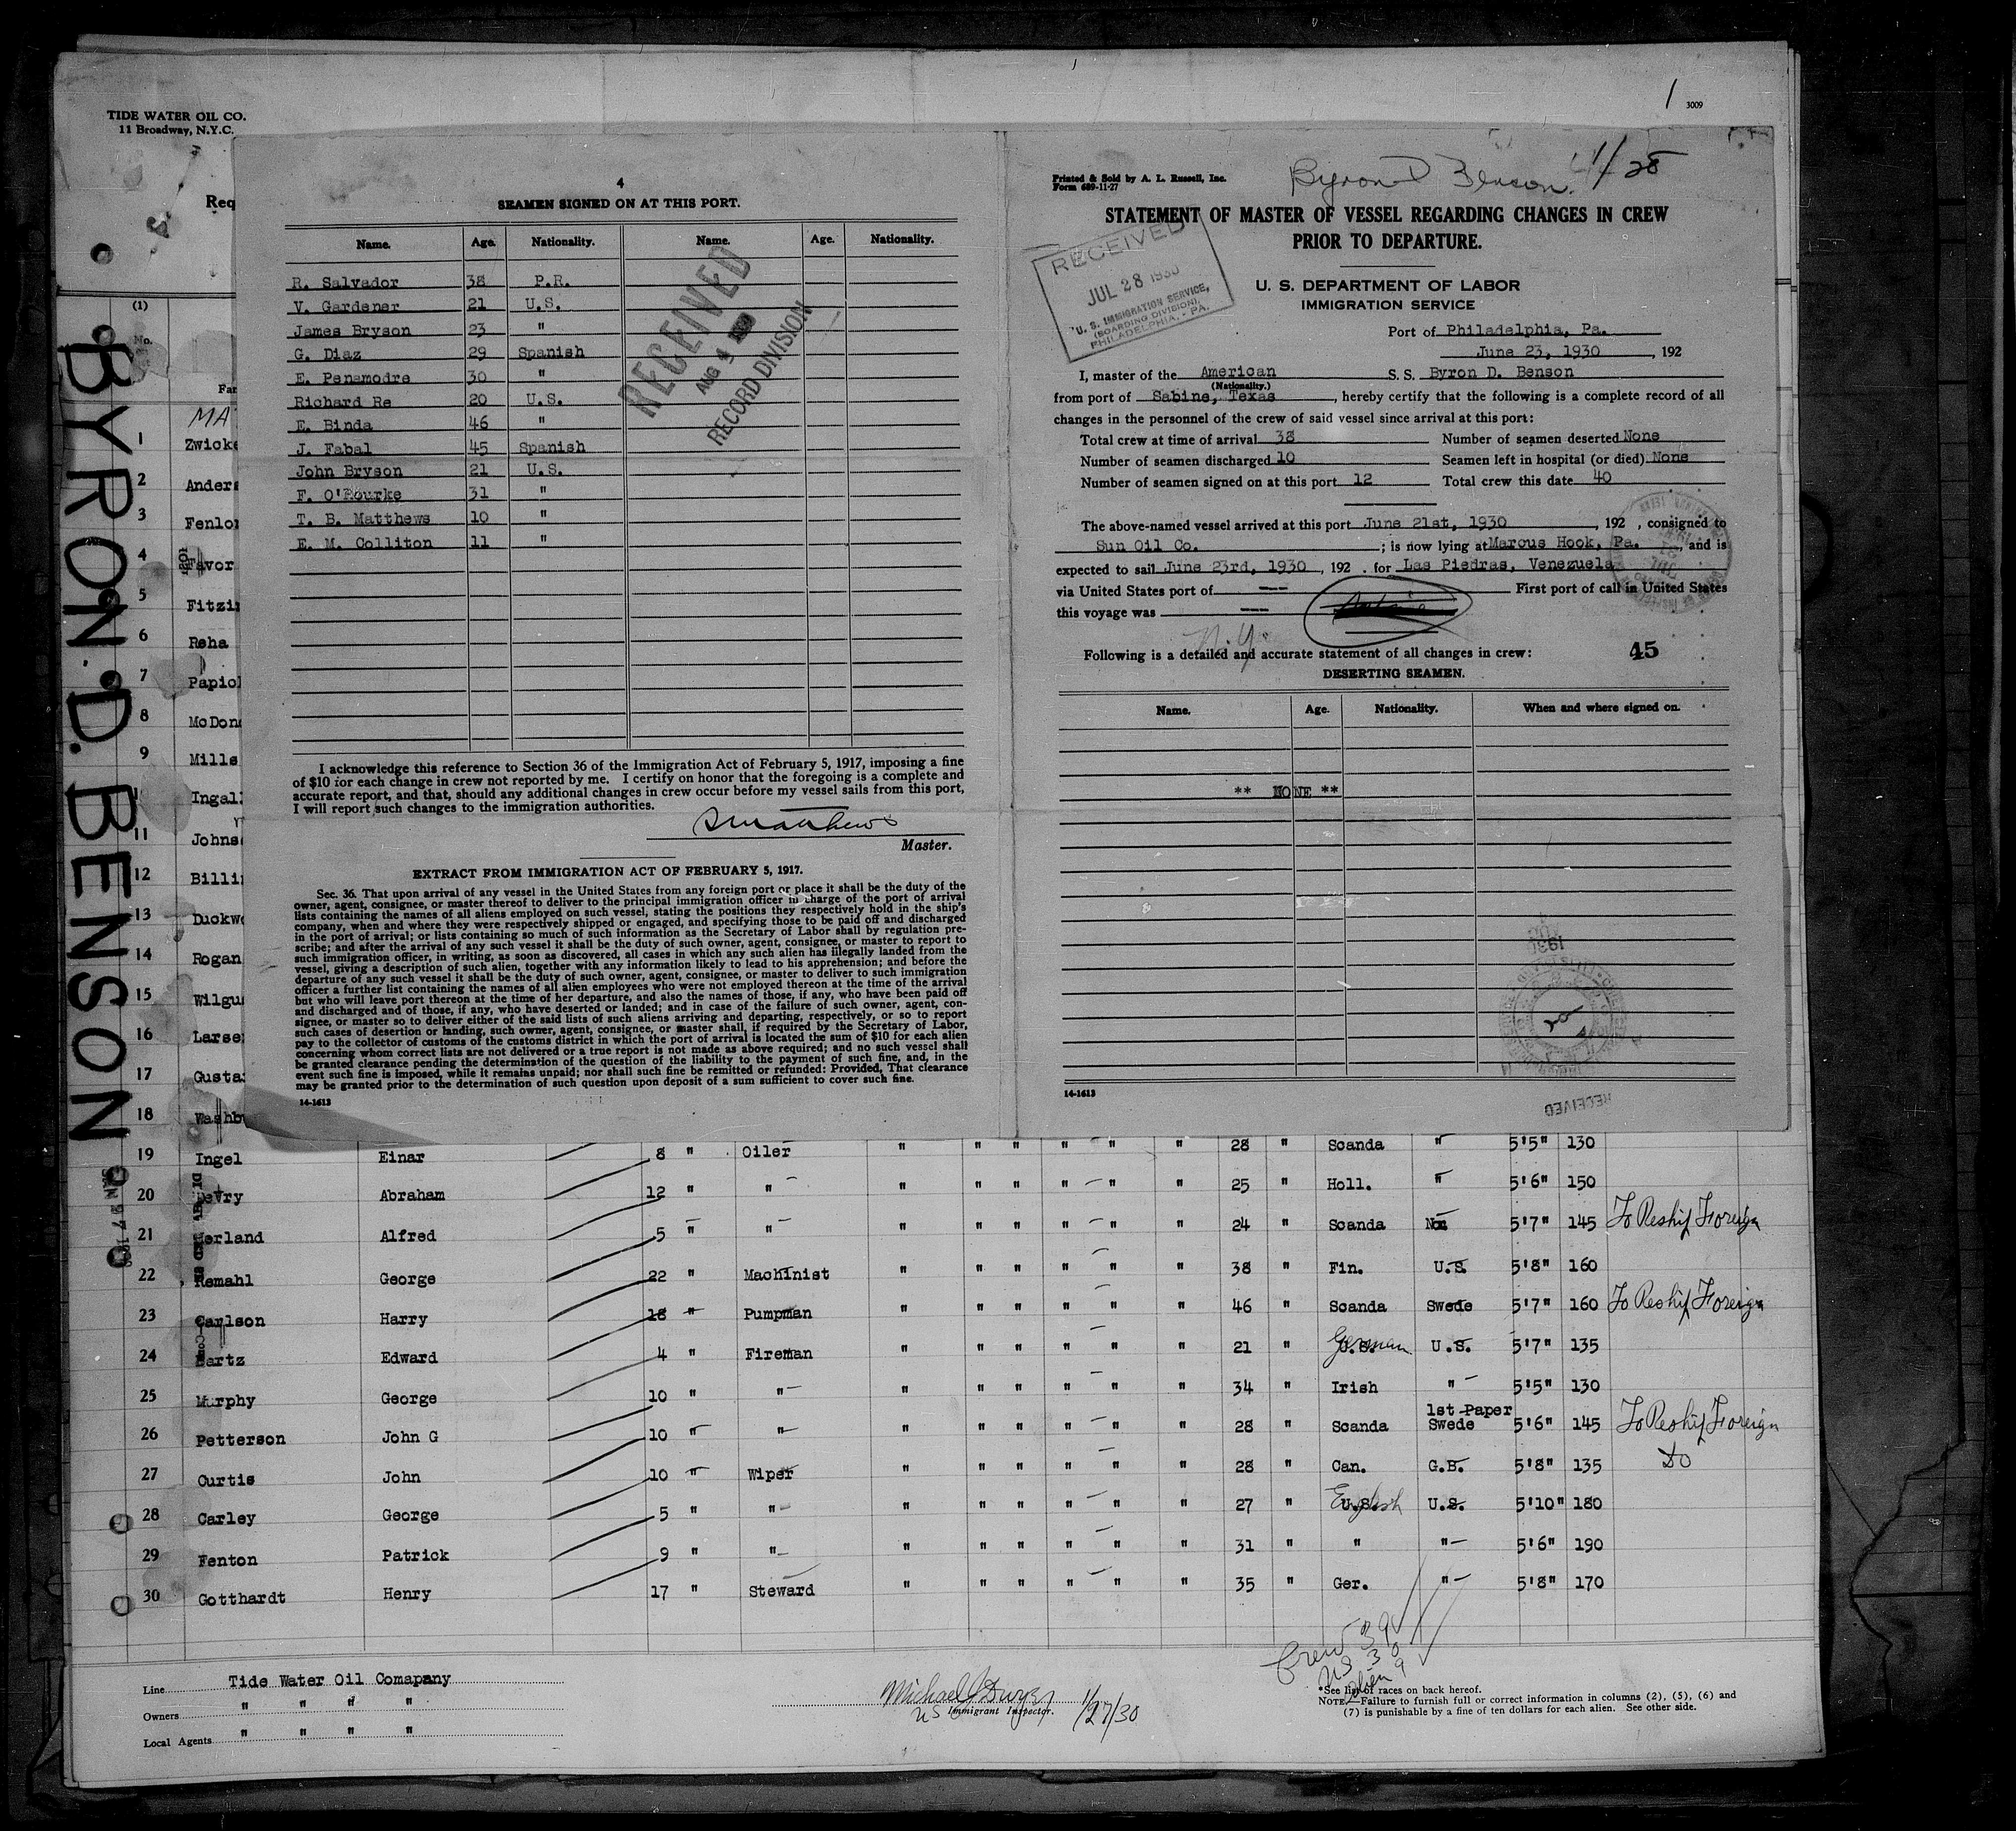 1 3009
TIDE WATER OIL CO.
11 Broadway, N.Y.C.
Req
(1)
No.
Far
BYRON. D. BENSON
MA
1 Zwicke
2 Anders
3 Fenlon
4 Favor
5 Fitzi
6 Reha
7 Papiol
8 McDon
9 Mills
Ingal
11 Johns
12 Billi
13 Duckwo
14 Rogan
15 Wilgu
16 Larse
17 Gusta
18 Washb
4
SEAMEN SIGNED ON AT THIS PORT.
Name. Age. Nationality. Name. Age. Nationality.
R. Salvador 38 P.R.
V. Gardener 21 U.S.
James Bryson 23 "
G. Diaz 29 Spanish
E. Penamodre 30 "
Richard Re 20 U.S.
E. Binda 46 "
J. Fabal 45 Spanish
John Bryson 21 U.S.
F. O'Rourke 31 "
T. B. Matthews 10 "
E. M. Colliton 11 "
RECEIVED
AUG 9
RECORD DIVISION
I acknowledge this reference to Section 36 of the Immigration Act of February 5, 1917, imposing a fine
of $10 for each change in crew not reported by me. I certify on honor that the foregoing is a complete and
accurate report, and that, should any additional changes in crew occur before my vessel sails from this port,
I will report such changes to the immigration authorities.
Master.
EXTRACT FROM IMMIGRATION ACT OF FEBRUARY 5, 1917.
Sec. 36. That upon arrival of any vessel in the United States from any foreign port or place it shall be the duty of the
owner, agent, consignee, or master thereof to deliver to the principal immigration officer in charge of the port of arrival
lists containing the names of all aliens employed on such vessel, stating the positions they respectively hold in the ship's
company, when and where they were respectively shipped or engaged, and specifying those to be paid off and discharged
in the port of arrival; or lists containing so much of such information as the Secretary of Labor shall by regulation pre-
scribe; and after the arrival of any such vessel it shall be the duty of such owner, agent, consignee, or master to report to
such immigration officer, in writing, as soon as discovered, all cases in which any such alien has illegally landed from the
vessel, giving a description of such alien, together with any information likely to lead to his apprehension; and before the
departure of any such vessel it shall be the duty of such owner, agent, consignee, or master to deliver to such immigration
officer a further list containing the names of all alien employees who were not employed thereon at the time of the arrival
but who will leave port thereon at the time of her departure, and also the names of those, if any, who have been paid off
and discharged and of those, if any, who have deserted or landed; and in case of the failure of such owner, agent, con-
signee, or master so to deliver either of the said lists of such aliens arriving and departing, respectively, or so to report
such cases of desertion or landing, such owner, agent, consignee, or master shall, if required by the Secretary of Labor,
pay to the collector of customs of the customs district in which the port of arrival is located the sum of $10 for each alien
concerning whom correct lists are not delivered or a true report is not made as above required; and no such vessel shall
be granted clearance pending the determination of the question of the liability to the payment of such fine, and, in the
event such fine is imposed, while it remains unpaid; nor shall such fine be remitted or refunded: Provided, That clearance
may be granted prior to the determination of such question upon deposit of a sum sufficient to cover such fine.
14-1613
Printed & Sold by A. L. Russell, Inc.
Form 689-11-27
Byron D Benson. 1/28
STATEMENT OF MASTER OF VESSEL REGARDING CHANGES IN CREW
PRIOR TO DEPARTURE.
RECEIVED
JUL 28 1930
U. S. IMMIGRATION SERVICE,
(BOARDING DIVISION),
PHILADELPHIA, - PA.
U. S. DEPARTMENT OF LABOR
IMMIGRATION SERVICE
Port of Philadelphia, Pa.
June 23, 1930, 192
I, master of the American S. S. Byron D. Benson
(Nationality.)
from port of Sabine, Texas, hereby certify that the following is a complete record of all
changes in the personnel of the crew of said vessel since arrival at this port:
Total crew at time of arrival 38 Number of seamen deserted None
Number of seamen discharged 10 Seamen left in hospital (or died) None
Number of seamen signed on at this port 12 Total crew this date 40
The above-named vessel arrived at this port June 21st, 1930, 192 , consigned to
Sun Oil Co. ; is now lying at Marcus Hook, Pa. , and is
expected to sail June 23rd, 1930, 192 . for Las Piedras, Venezuela
via United States port of --- First port of call in United States
this voyage was ---
N.Y.
Following is a detailed and accurate statement of all changes in crew: 45
DESERTING SEAMEN.
Name. Age. Nationality. When and where signed on.
** NONE **
1930
14-1613
RECEIVED
19 Ingel Einar 8 " Oiler " " " " " " 28 " Scanda " 5'5" 130
20 DeVry Abraham 12 " " " " " " " " 25 " Holl. " 5'6" 150
21 erland Alfred 5 " " " " " " " " 24 " Scanda 5'7" 145 To Reship Foreign
22 Remahl George 22 " Machinist " " " " " " 38 " Fin. U.S. 5'8" 160
23 Carlson Harry 18 " Pumpman " " " " " " 46 " Scanda Swede 5'7" 160 To Reship Foreign
24 artz Edward 4 " Fireman " " " " " " 21 " German U.S. 5'7" 135
25 Murphy George 10 " " " " " " " " 34 " Irish " 5'5" 130
26 Petterson John G 10 " " " " " " " " 28 " Scanda 1st Paper Swede 5'6" 145 To Reship Foreign
27 Curtis John 10 " Wiper " " " " " " 28 " Can. G.B. 5'8" 135 Do
28 Carley George 5 " " " " " " " " 27 " U.S. English U.S. 5'10" 180
29 Fenton Patrick 9 " " " " " " " " 31 " " " 5'6" 190
30 Gotthardt Henry 17 " Steward " " " " " " 35 " Ger. " 5'8" 170
Crew 39
US 30
Alien 9
Line Tide Water Oil Comapany
Owners " " " "
Local Agents " " " "
Michael J Dwyer 1/27/30
US Immigrant Inspector.
*See list of races on back hereof.
NOTE.—Failure to furnish full or correct information in columns (2), (5), (6) and
(7) is punishable by a fine of ten dollars for each alien. See other side.